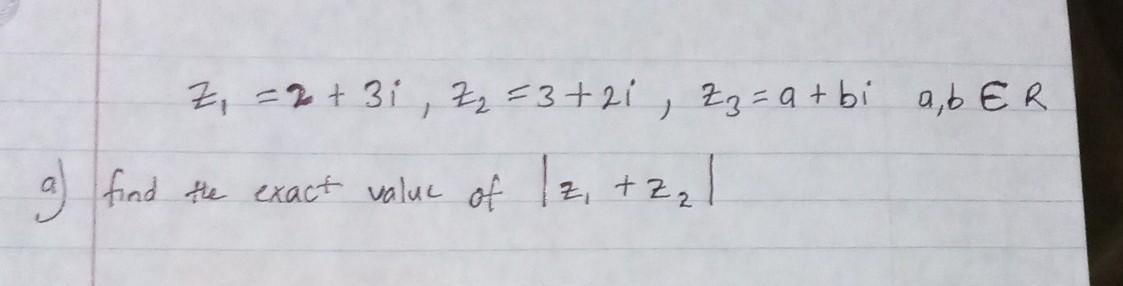 z₁ = 2 + 3i , z₂ = 3 + 2i , z₃ = a + bi a,b ∈ R
a) find the exact value of |z₁ + z₂|